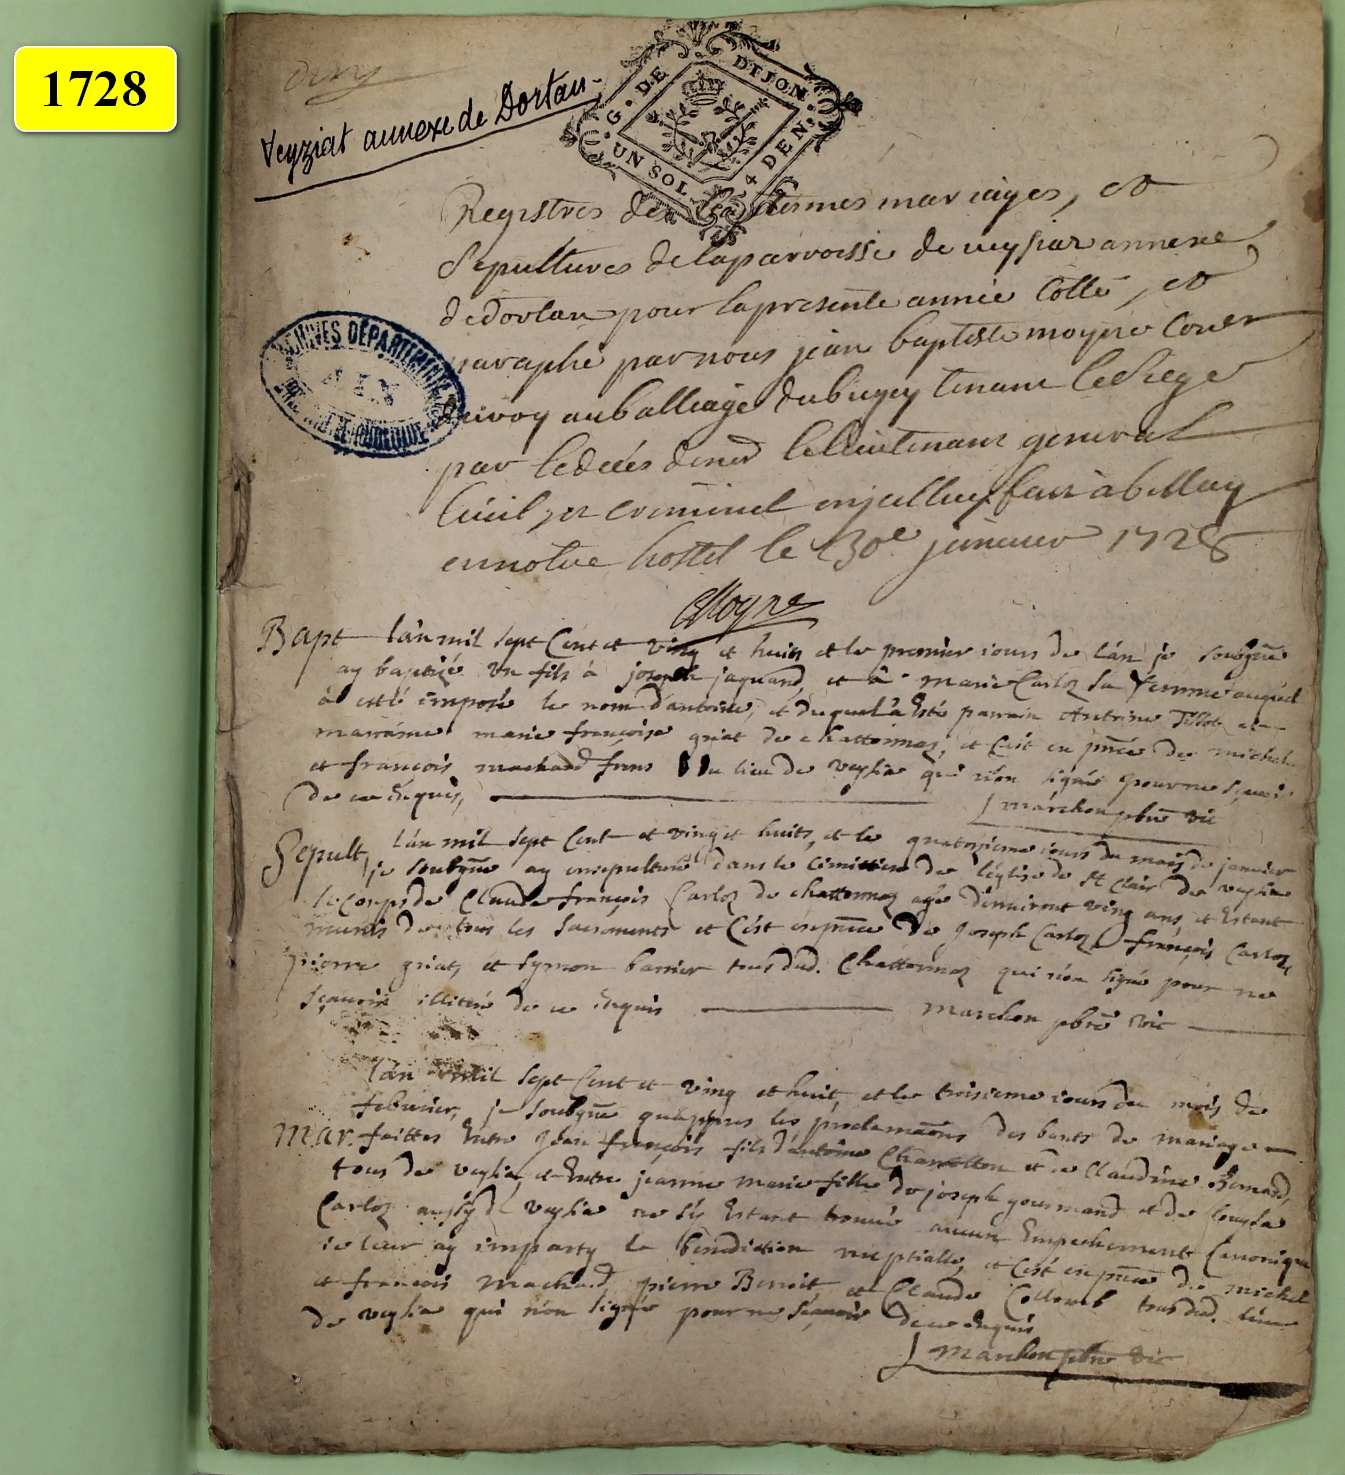 1728
Veyziat annexe de Dortan
G. DE DIJON.
UN SOL 4 DEN.
ARCHIVES DÉPARTEMENTALES
Registres des baptesmes mariages, et
Sepultures de la parroisse de veysiat annexe
de dortan pour la presente année Cotté, et
paraphé par nous jean baptiste moyne Coner
du roy au balliage du bugey tenant le siege
par le deces de mr le lieutenant general
Civil et criminel fait à belley
en notre hostel le 30e janvier 1728
Moyne
Bapt lân mil sept Cent et ving et huit et le premier iours de lân je soubsne
ay baptizé un fils à joseph jaquand, et à marie Carloz sa femme auquel
à esté imposé le nom dântoine, et duquel à esté parrain Antoine Tissot et
marraine marie françoise griat de chattonnaz, et c'est en pnce de michel
et francois machard frens du lieu de veyzia qui n'on signé pour ne sçavoir
de ce enquis, L marchon pbre vic
Sepult, lân mil sept Cent et ving et huits, et le quatorzieme iours du mois de janvier
je soubsne ay ensepulturé dans le cimitiere de l'église de st Clair de veyzia
le corps de Claude françois Carloz de chattonnaz agé d'environt ving ans, et estant
munis de tous les sacrements et c'est en pnce de joseph Carloz, françois Carloz,
pierre griat, et symon barrier tous dud. Chattonnaz qui n'on signé pour ne
sçavoir illitéré de ce enquis marchon pbre vic
lân mil sept Cent et ving et huit, et le troisieme iours du mois de
febvrier, je soubsne qu'appres les proclamaons des bants de mariage
Mar. faittes entre jean françois fils d'antoine Chavetton et de Claudine Benard,
tous de veyzia, et entre jeanne marie fille de joseph gourmand et de louyse
Carloz aussy de veyzia ne s'is estant trouvé aucun empechement canonique
ie leur ay imparty la benediction nuptialle, et c'est en pnce de michel
et francois machard, pierre Benoit, et Claude Collomb tous dud. lieu
de veyzia qui n'on signé pour ne sçavoir de ce enquis
L marchon pbre vic